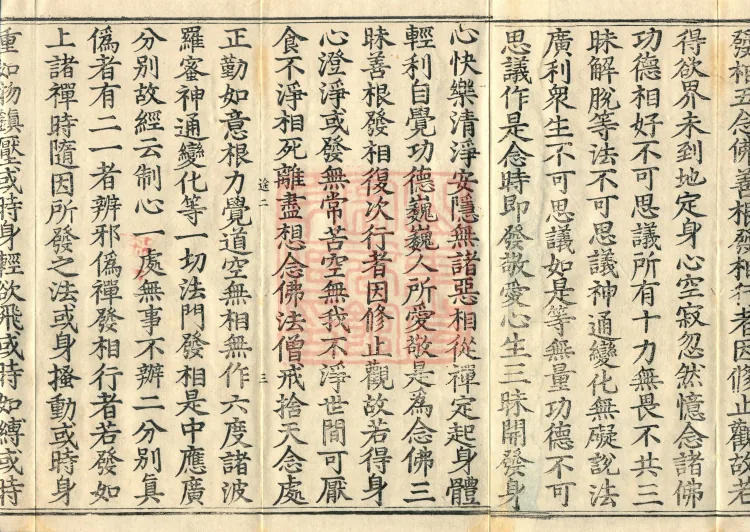 發相五念佛善根發相行者因修止觀故若
得欲界未到地定身心空寂忽然憶念諸佛
功德相好不可思議所有十力無畏不共三
昧解脫等法不可思議神通變化無礙說法
廣利衆生不可思議如是等無量功德不可
思議作是念時即發敬愛心生三昧開發身
心快樂清淨安隱無諸惡相從禪定起身體
輕利自覺功德巍巍人所愛敬是爲念佛三
昧善根發相復次行者因修止觀故若得身
心澄淨或發無常苦空無我不淨世間可厭
食不淨相死離盡想念佛法僧戒捨天念處
途二 三
正勤如意根力覺道空無相無作六度諸波
羅蜜神通變化等一切法門發相是中應廣
分別故經云制心一處無事不辦二分別真
僞者有二一者辨邪僞禪發相行者若發如
上諸禪時隨因所發之法或身搔動或時身
重如物鎮壓或時身輕欲飛或時如縛或時